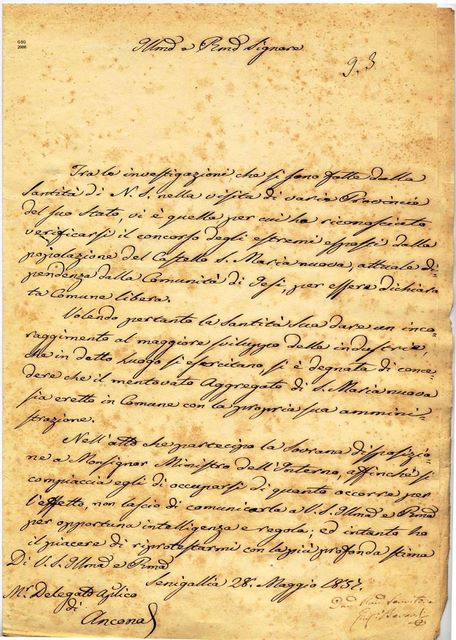 GSG
2008
Illmo e Rmo Signore
9.3
Tra le investigazioni, che si sono fatte dalla
Santità di N. S. nella visita di varie Provincie
del suo Stato, vi è quella per cui ha riconosciuto
verificarsi il concorso degli estremi esposti dalla
popolazione del Castello S. Maria nuova, attuale di-
pendenza dalla Comunità di Jesi, per essere dichiara-
ta Comune libera.
Volendo pertanto la Santità Sua dare un inco-
raggimento al maggiore sviluppo delle industrie,
che in detto luogo si esercitano, si è degnata di conce-
dere che il mentovato Aggregato di S. Maria nuova
sia eretto in Comune con la propria sua ammini-
strazione.
Nell'atto che partecipo la Sovrana disposizio-
ne a Monsignor Ministro dell'Interno, affinchè si
compiaccia egli di occuparsi di quanto occorre per
l'effetto, non lascio di comunicarla a V. S. Illma e Rma
per opportuna intelligenza e regola: ed intanto ho
il piacere di riprotestarmi con la più profonda stima
Di V. S. Illma e Rma
Senigallia 28. Maggio 1857.
Mr. Delegato Aplico
di
Ancona